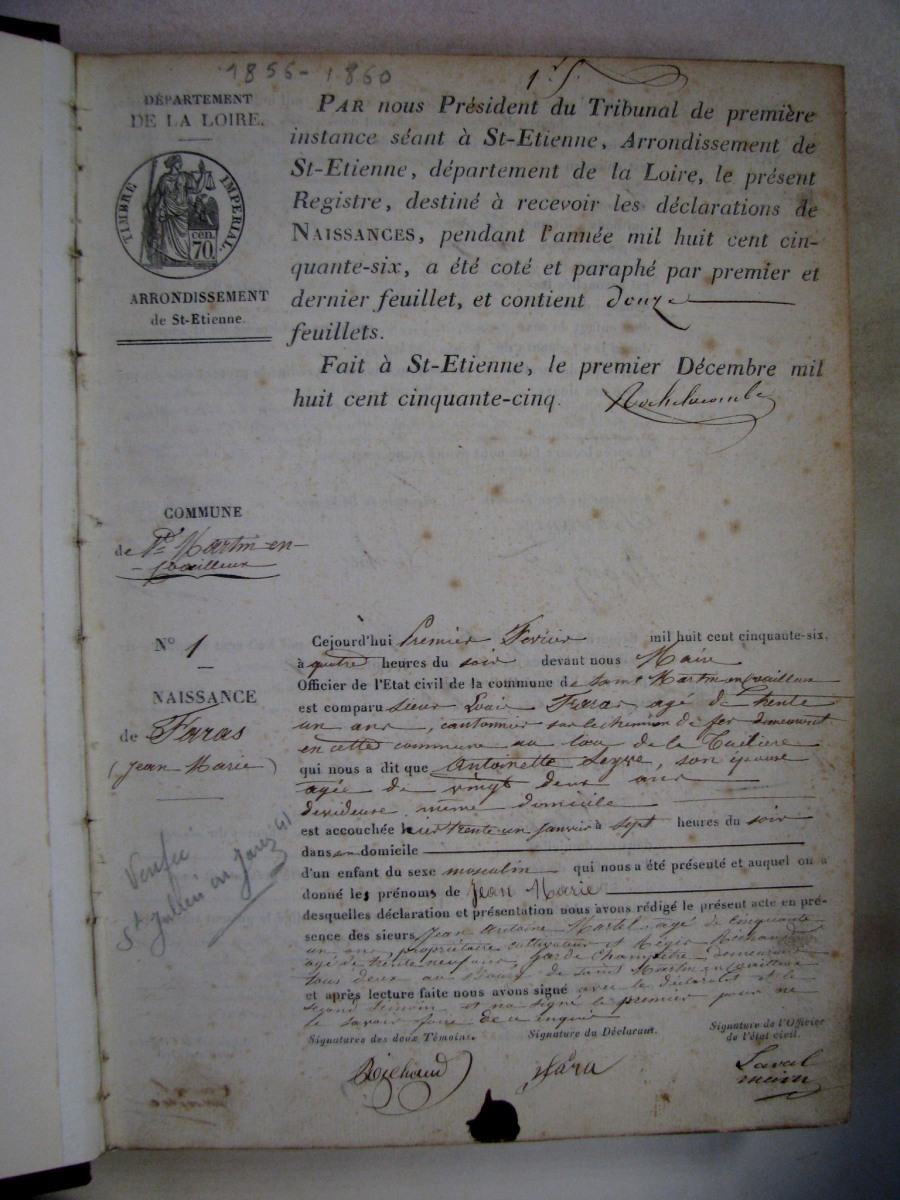 1856-1860
DÉPARTEMENT
DE LA LOIRE.
TIMBRE IMPÉRIAL.
cen.
70.
ARRONDISSEMENT
de St-Etienne.
PAR nous Président du Tribunal de première
instance séant à St-Etienne, Arrondissement de
St-Etienne, département de la Loire, le présent
Registre, destiné à recevoir les déclarations de
NAISSANCES, pendant l'année mil huit cent cin-
quante-six, a été coté et paraphé par premier et
dernier feuillet, et contient douze
feuillets.
Fait à St-Etienne, le premier Décembre mil
huit cent cinquante-cinq.
Rochelacombe
COMMUNE
de St Martin-en-
-Coailleux
N° 1
NAISSANCE
de Faras
(Jean Marie)
Cejourd'hui Premier Fevrier mil huit cent cinquante-six,
à quatre heures du soir devant nous Maire
Officier de l'Etat civil de la commune de Saint Martin en Coailleux
est comparu sieur Louis Faras, agé de trente
un ans, cantonnier sur le chemin de fer demeurant
en cette commune au lieu de la
qui nous a dit que Antoinette Seyve, son épouse
agée de vingt deux ans
devideuse même domicile
est accouchée hier trente-un janvier à sept heures du soir
dans son domicile
d'un enfant du sexe masculin qui nous a été présenté et auquel on a
donné les prénoms de Jean Marie
desquelles déclaration et présentation nous avons rédigé le présent acte en pré-
sence des sieurs Jean Antoine Martel, agé de cinquante
un ans, propriétaire cultivateur et Régis Richaud
agé de trente neuf ans, garde champêtre, demeurant
tous deux au Bourg de Saint Martin en Coailleux
et après lecture faite nous avons signé avec le déclarant et le
second témoin et non signé le premier pour ne
le savoir faire de ce enquis
Signatures des deux Témoins.
Signature du Déclarant.
Signature de l'Officier
de l'état civil.
Richaud
fara
Laval
maire
St Julien en Jarez 41